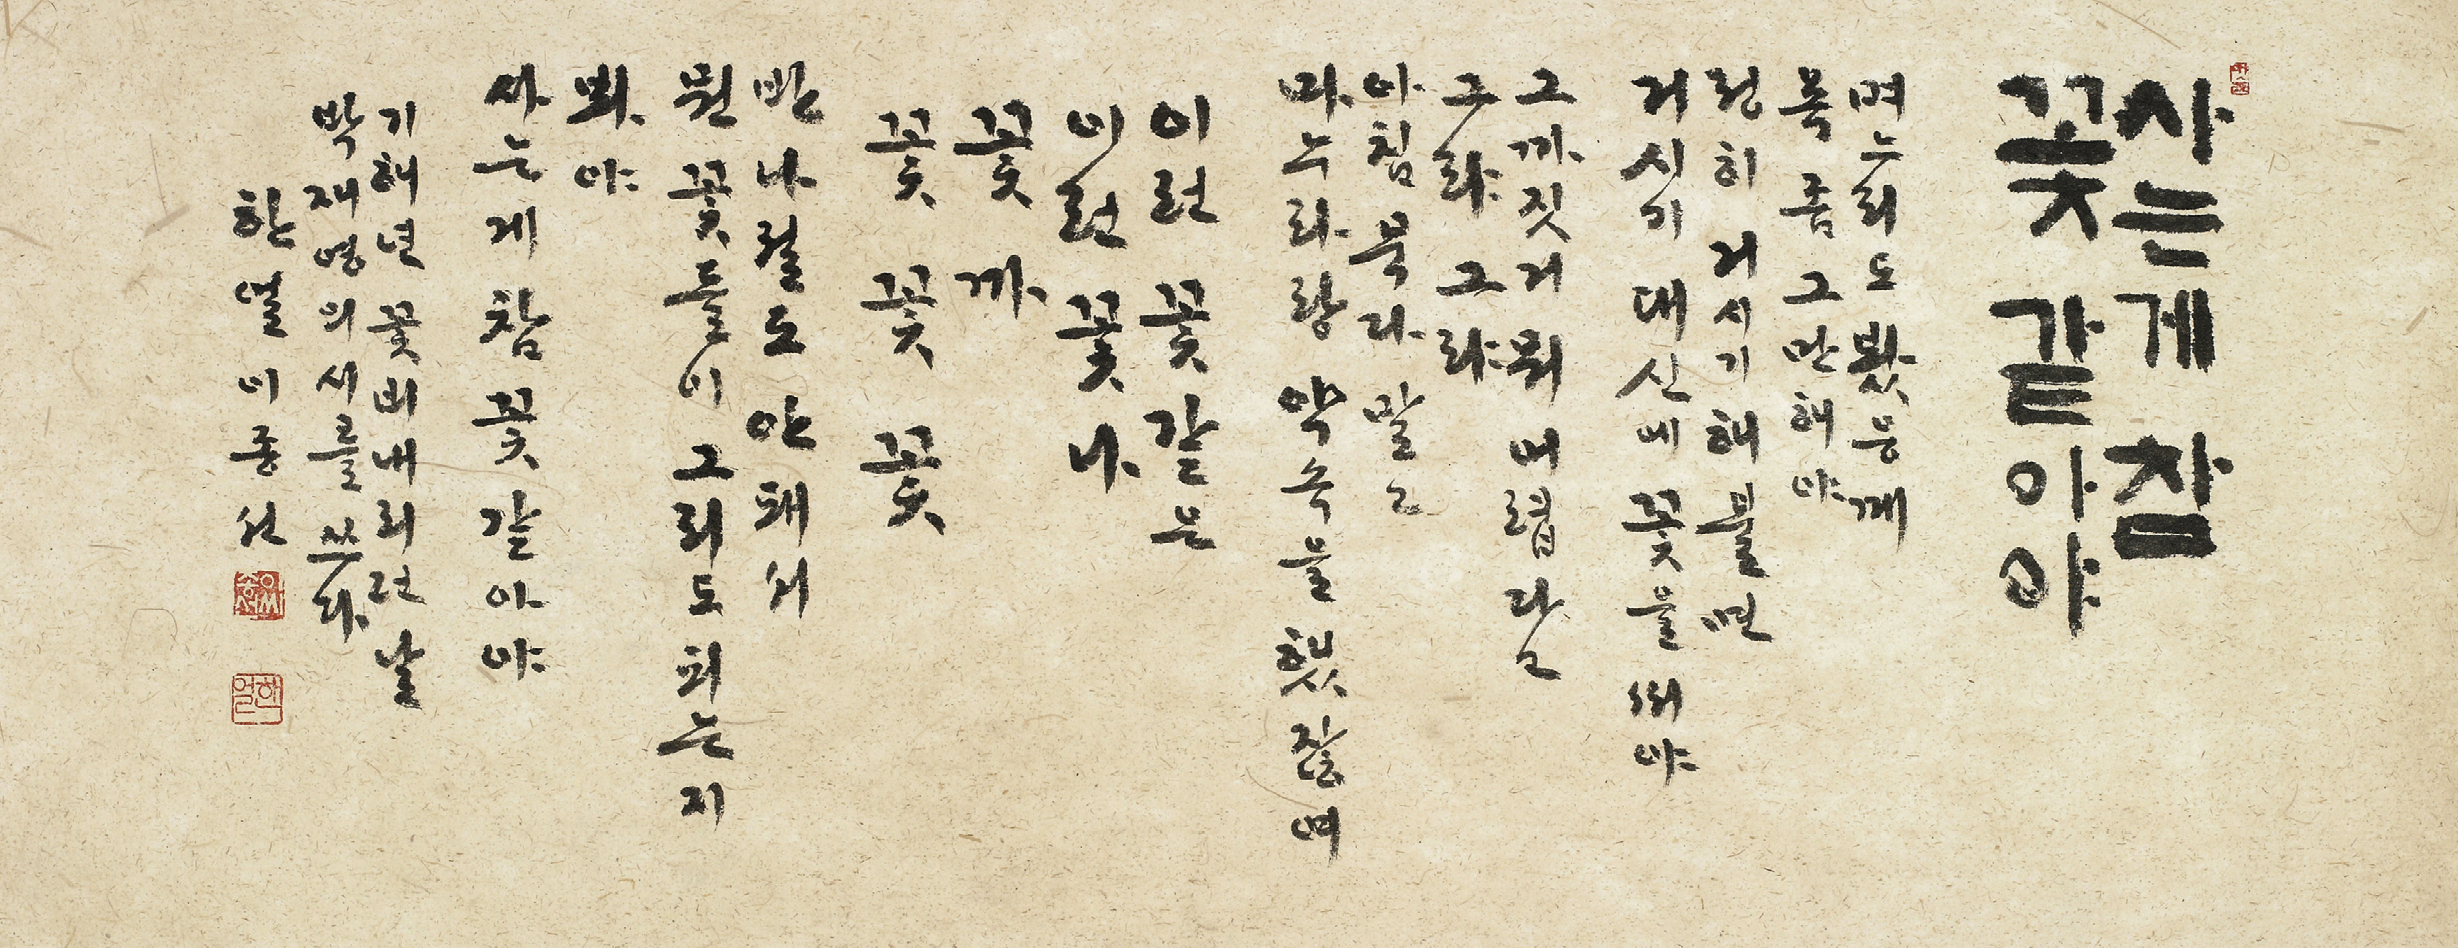 사는게 참
꽃 같아야
며느리도 봤응께
욕 좀 그만해야
정히 거시기 해불면
거시기 대신에 꽃을 써야
그까짓 거 뭐 어렵다고
그랴 그랴
아침 묵다 말고
마누라랑 약속을 했잖여
이런 꽃 같은
이런 꽃나
꽃까
꽃 꽃 꽃
반나절도 안돼서
뭔 꽃들이 그리도 피는지
봐야
사는게 참 꽃 같아야
기해년 꽃비 내리던 날
박제영의 시를 쓰다
한얼 이종선
한얼